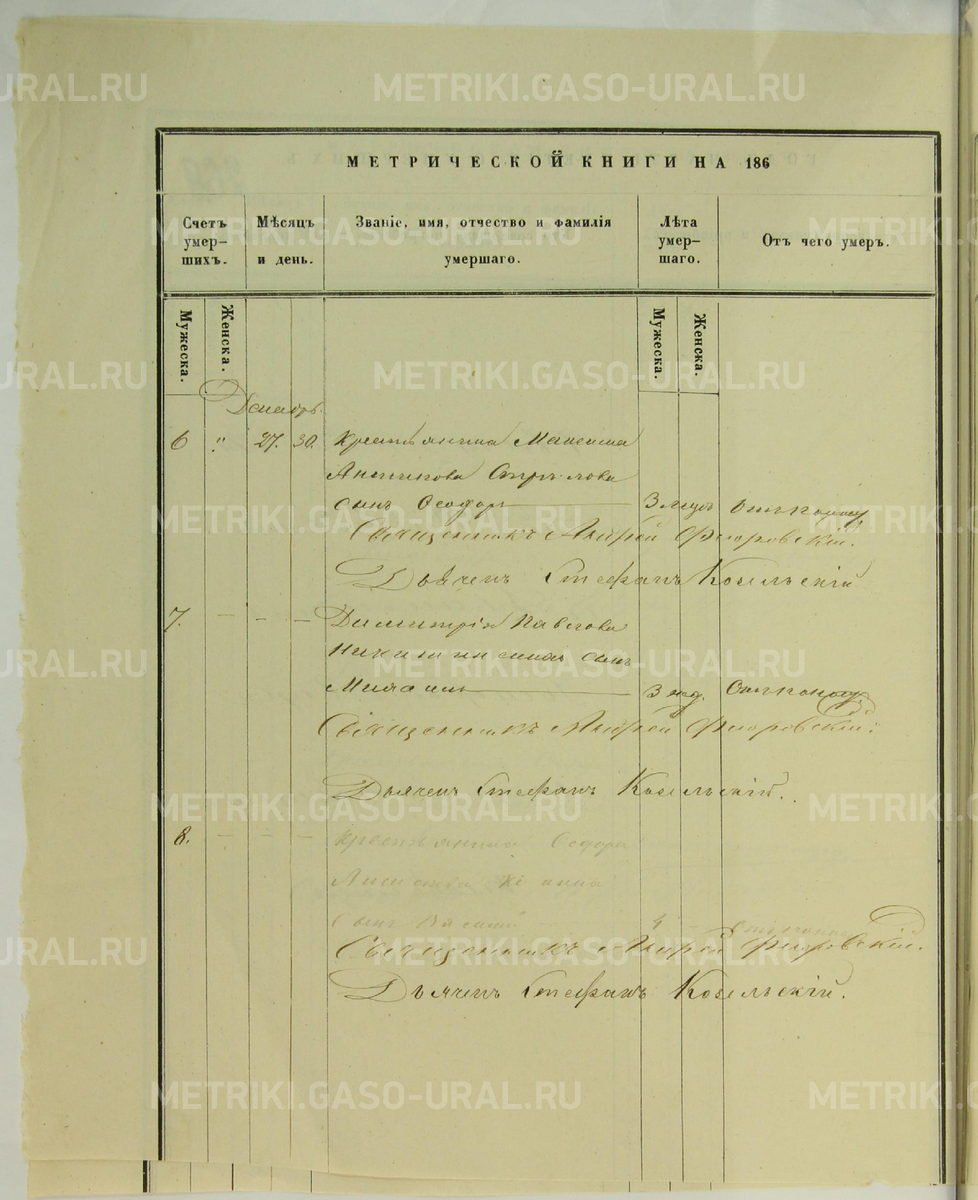 МЕТРИЧЕСКОЙ КНИГИ НА 186
Счетъ умер- шихъ.
Мѣсяцъ и день.
Званіе, имя, отчество и фамилія умершаго.
Лѣта умер- шаго.
Отъ чего умеръ.
Мужеска.
Женска.
Мужеска.
Женска.
Декабрь.
6 " 27. 30. крестьянина Максима
сынъ Феодоръ 3 мѣс.
Священникъ Андрей Флоровскій.
Дьячекъ Стефанъ Козельскій
7. Димитрія Павлова
сынъ
3 нед.
Священникъ Андрей Флоровскій.
Дьячекъ Стефанъ Козельскій.
8. крестьянина Феодора
сынъ
Священникъ Андрей Флоровскій.
Дьячекъ Стефанъ Козельскій.
METRIKI.GASO-URAL.RU